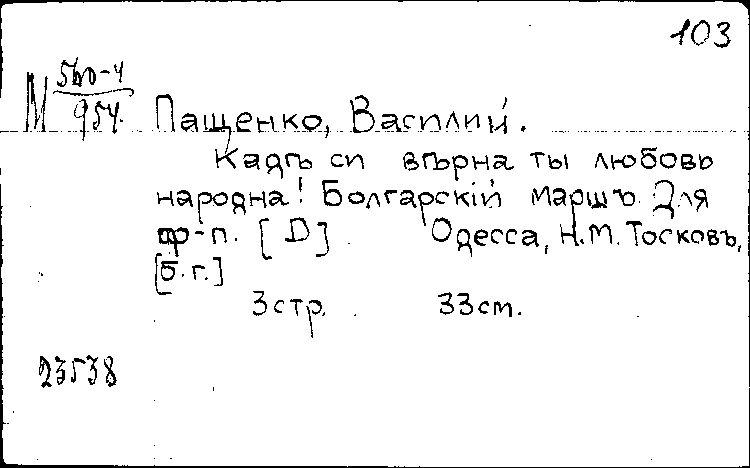 103
М 560-4/954.
Пащенко, Василий.
Кадѣ си вѣрна ты любовь
народна! Болгарскій маршъ. Для
ф-п. [D] Одесса, Н.М. Тосковъ,
[б.г.]
3 стр. 33 см.
23538